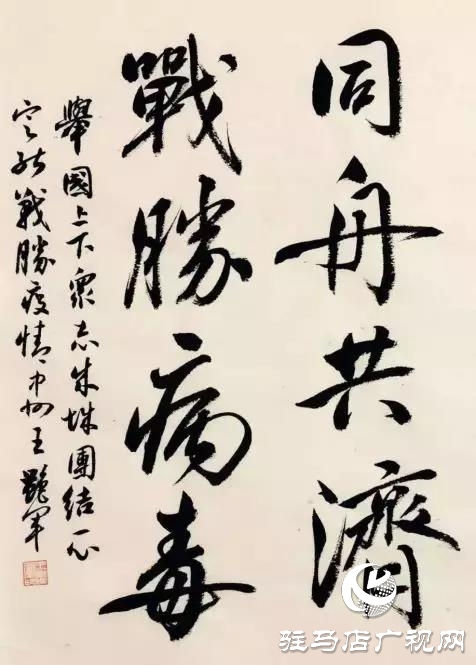 同舟共濟
戰勝病毒
舉國上下衆志成城團結一心
定能戰勝疫情中州王艷軍
驻马店广视网